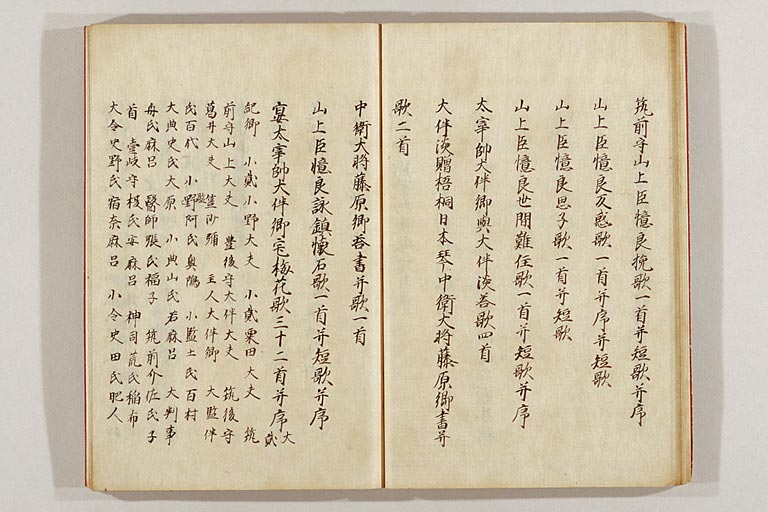 筑前守山上臣憶良挽歌一首并短歌并序
山上臣憶良反惑歌一首并序并短歌
山上臣憶良思子歌一首并短歌
山上臣憶良世間難住歌一首并短歌并序
太宰帥大伴卿與大伴淡荅歌四首
大伴淡贈梧桐日本琴中衛大将藤原卿書并
歌二首
中衛大将藤原卿荅書并歌一首
山上臣憶良詠鎮懐石歌一首并短歌并序
宴太宰帥大伴卿宅梅花歌三十二首并序 大貳
紀卿 小貳小野大夫 小貳粟田大夫 筑
前守山上大夫 豊後守大伴大夫 筑後守
葛井大夫 笠沙弥 主人大伴卿 大監伴
氏百代 小野阿氏奥嶋 小監土氏百村
大典史氏大原 小典山氏若麻呂 大判事
舟氏麻呂 醫師張氏福子 筑前介佐氏子
首 壹岐守板氏安麻呂 神司荒氏稲布
大令史野氏宿奈麻呂 小令史田氏肥人